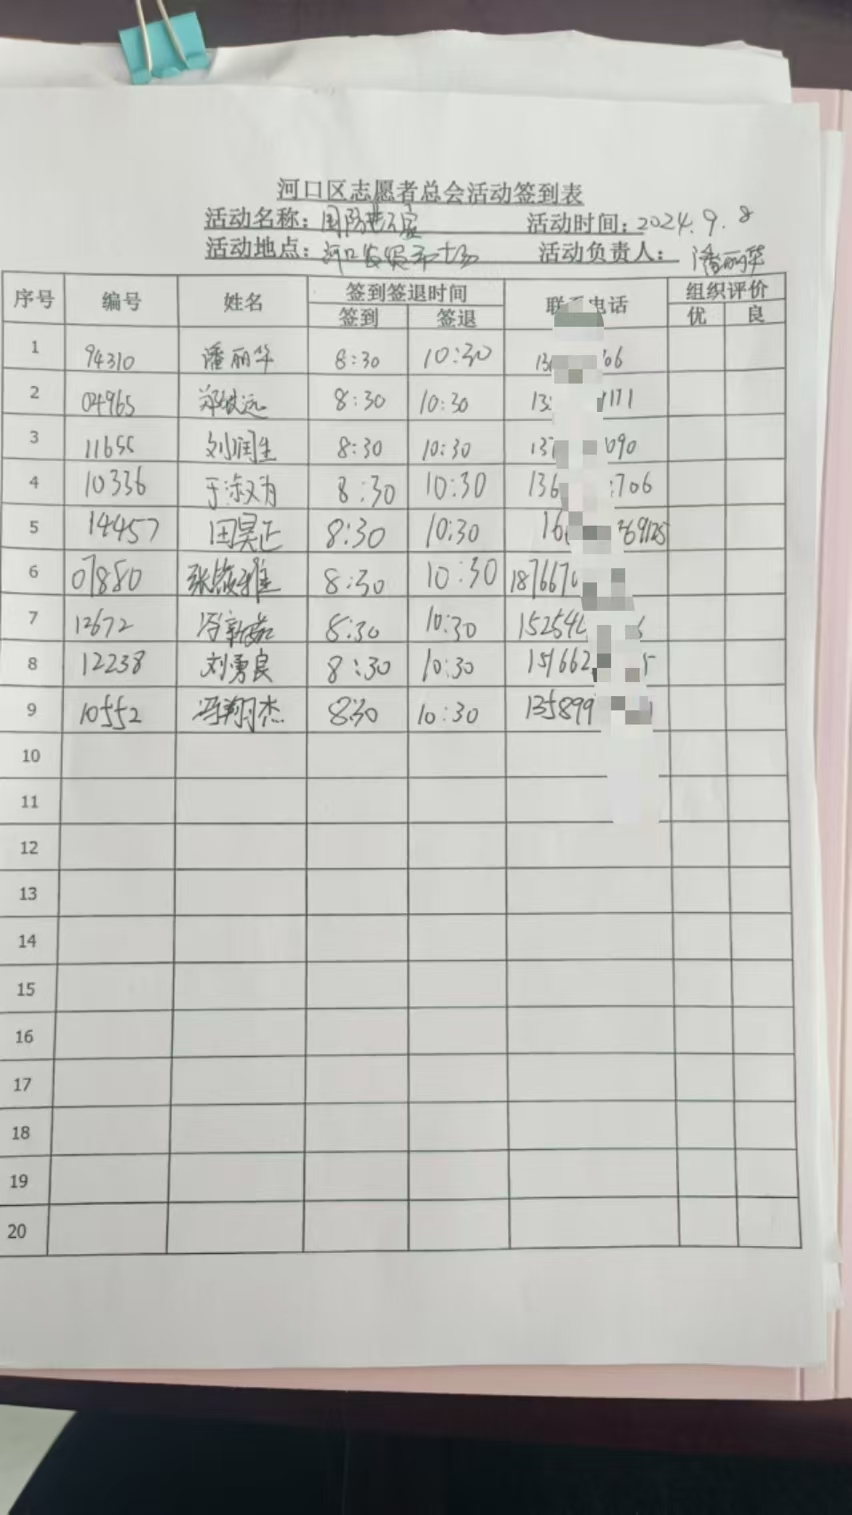 河口区志愿者总会活动签到表
活动名称: 国防进万家 活动时间: 2024.9.8
活动地点: 河口 活动负责人: 潘丽华
序号 编号 姓名 签到签退时间 联系电话 组织评价
签到 签退 优 良
1 94310 潘丽华 8:30 10:30 06
2 04965 郑 远 8:30 10:30 171
3 11655 刘润生 8:30 10:30 090
4 10336 于淑为 8:30 10:30 136 706
5 14457 田昊正 8:30 10:30 16 69125
6 07880 张 雅 8:30 10:30 187667
7 12672 冯新茹 8:30 10:30 15254
8 12238 刘勇良 8:30 10:30 151662 5
9 10552 冯翔杰 8:30 10:30 135899
10
11
12
13
14
15
16
17
18
19
20